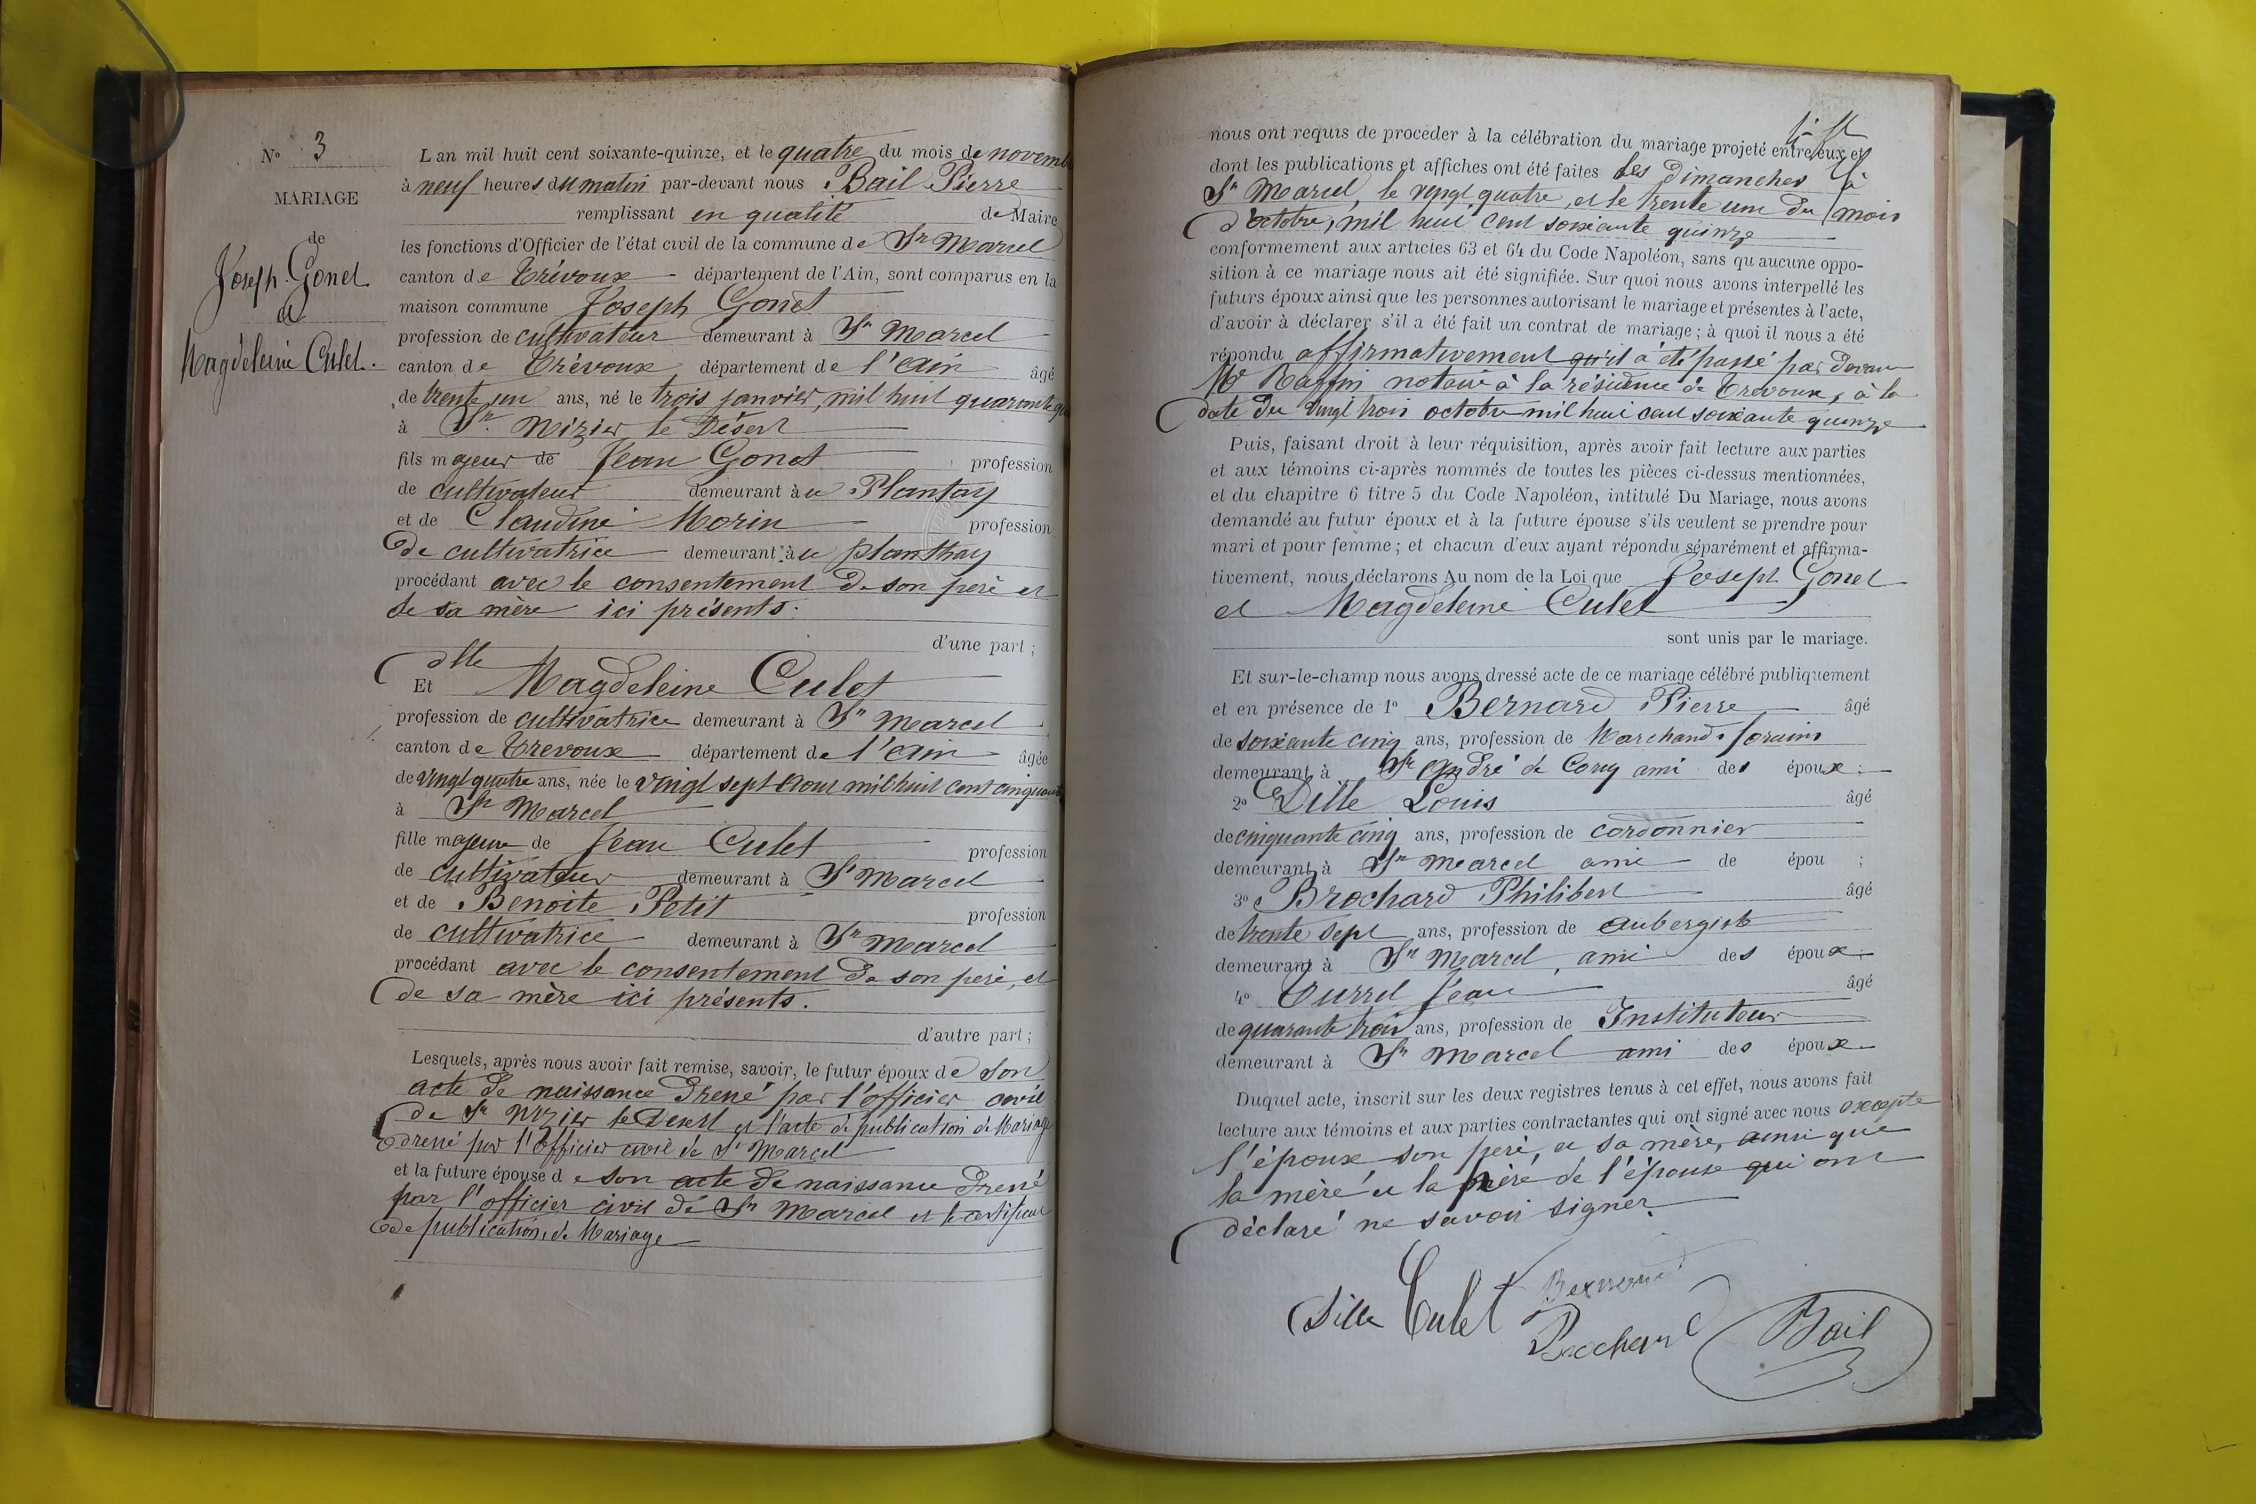 N° 3
MARIAGE
de
Joseph Gonet
et
Magdeleine Culet.
L'an mil huit cent soixante-quinze, et le quatre du mois de novemb
à neuf heures du matin par-devant nous Bail Pierre
remplissant en qualité de Maire
les fonctions d'Officier de l'état civil de la commune de St Marcel
canton de Trévoux département de l'Ain, sont comparus en la
maison commune Joseph Gonet
profession de cultivateur demeurant à St Marcel
canton de Trévoux département de l'ain âgé
de trente un ans, né le trois janvier, mil huit quarante
à St. Nizier le Désert
fils majeur de Jean Gonet profession
de cultivateur demeurant au Plantay
et de Claudine Morin profession
de cultivatrice demeurant au planthay
procédant avec le consentement de son père et
de sa mère ici présents.
d'une part ;
Et dlle Magdeleine Culet
profession de cultivatrice demeurant à St Marcel
canton de Trevoux département de l'ain âgée
de vingt quatre ans, née le vingt sept aout mil huit cent cinquante
à St Marcel
fille majeure de Jean Culet profession
de cultivateur demeurant à St Marcel
et de Benoite Petit profession
de cultivatrice demeurant à St Marcel
procédant avec le consentement de son père, et
de sa mère ici présents.
d'autre part ;
Lesquels, après nous avoir fait remise, savoir, le futur époux de son
acte de naissance dréné par l'officier civil
de St Nizier le Desert et l'acte de publication de Mariage
dréné par l'officier civil de St Marcel
et la future épouse de son acte de naissance dréné
par l'officier civil de St Marcel et le certificat
de publication de Mariage
nous ont requis de procéder à la célébration du mariage projeté entre eux et
dont les publications et affiches ont été faites les dimanches à
St Marcel, le vingt quatre, et le trente un du mois
d'octobre, mil huit cent soixante quinze
conformément aux articles 63 et 64 du Code Napoléon, sans qu'aucune oppo-
sition à ce mariage nous ait été signifiée. Sur quoi nous avons interpellé les
futurs époux ainsi que les personnes autorisant le mariage et présentes à l'acte,
d'avoir à déclarer s'il a été fait un contrat de mariage ; à quoi il nous a été
répondu affirmativement qu'il a été passé par devant
Me Raffin notaire à la résidence de Trévoux, à la
date du vingt trois octobre mil huit cent soixante quinze
Puis, faisant droit à leur réquisition, après avoir fait lecture aux parties
et aux témoins ci-après nommés de toutes les pièces ci-dessus mentionnées,
et du chapitre 6 titre 5 du Code Napoléon, intitulé Du Mariage, nous avons
demandé au futur époux et à la future épouse s'ils veulent se prendre pour
mari et pour femme ; et chacun d'eux ayant répondu séparément et affirma-
tivement, nous déclarons Au nom de la Loi que Joseph Gonet
et Magdeleine Culet
sont unis par le mariage.
Et sur-le-champ nous avons dressé acte de ce mariage célébré publiquement
et en présence de 1° Bernard Pierre âgé
de soixante cinq ans, profession de Marchand forain
demeurant à St André de Corcy ami des époux :
2° Dille Louis âgé
de cinquante cinq ans, profession de cordonnier
demeurant à St Marcel ami de épou ;
3° Brochard Philibert âgé
de trente sept ans, profession de aubergiste
demeurant à St Marcel, ami des époux
4° Jean âgé
de quarante trois ans, profession de Instituteur
demeurant à St Marcel ami des époux
Duquel acte, inscrit sur les deux registres tenus à cet effet, nous avons fait
lecture aux témoins et aux parties contractantes qui ont signé avec nous excepté
l'époux son père, et sa mère, ainsi que
la mère de l'épouse qui ont
déclaré ne savoir signer.
Dille Culet Bernard
Brochard Bail